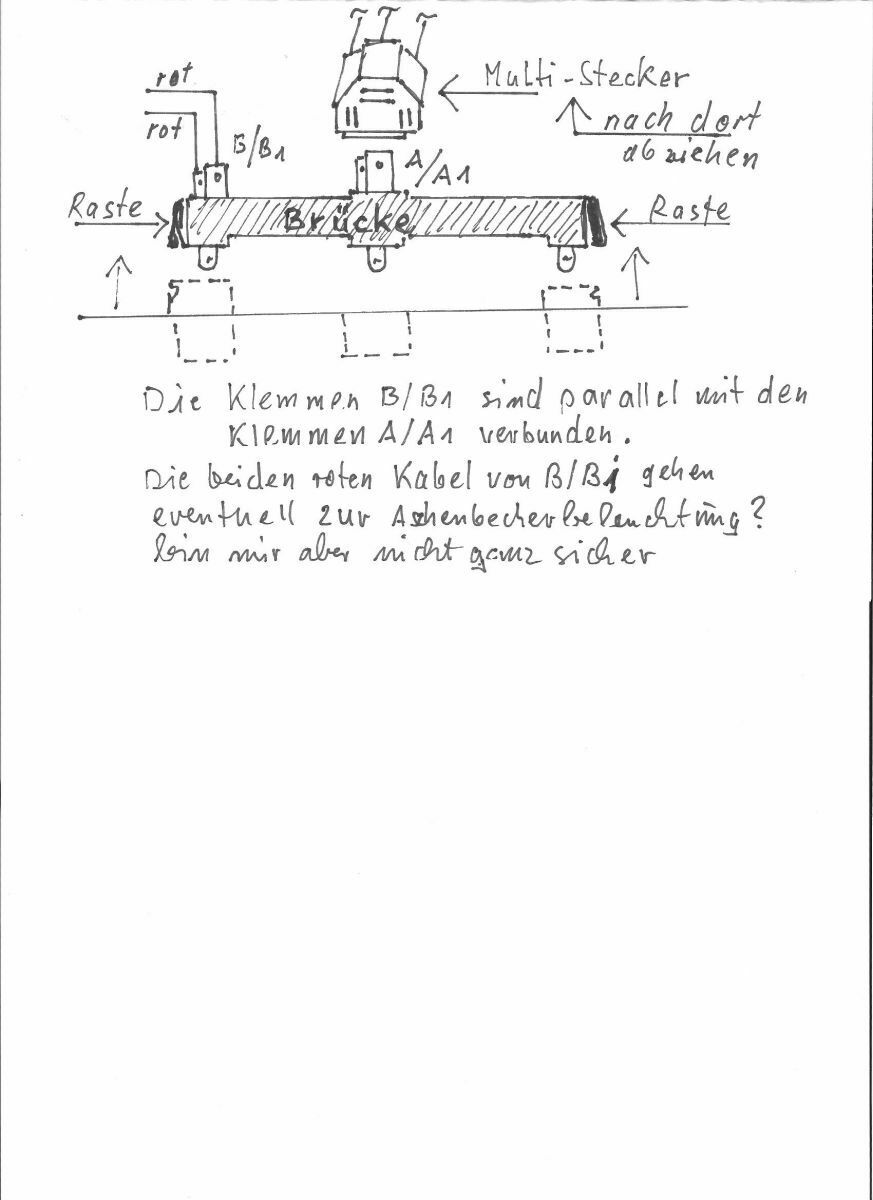 rot
rot
B/B1
Multi-Stecker
nach dort
abziehen
A/A1
Raste
Brücke
Raste
Die Klemmen B/B1 sind parallel mit den
Klemmen A/A1 verbunden.
Die beiden roten Kabel von B/B1 gehen
eventuell zur Aschenbecherbeleuchtung?
bin mir aber nicht ganz sicher